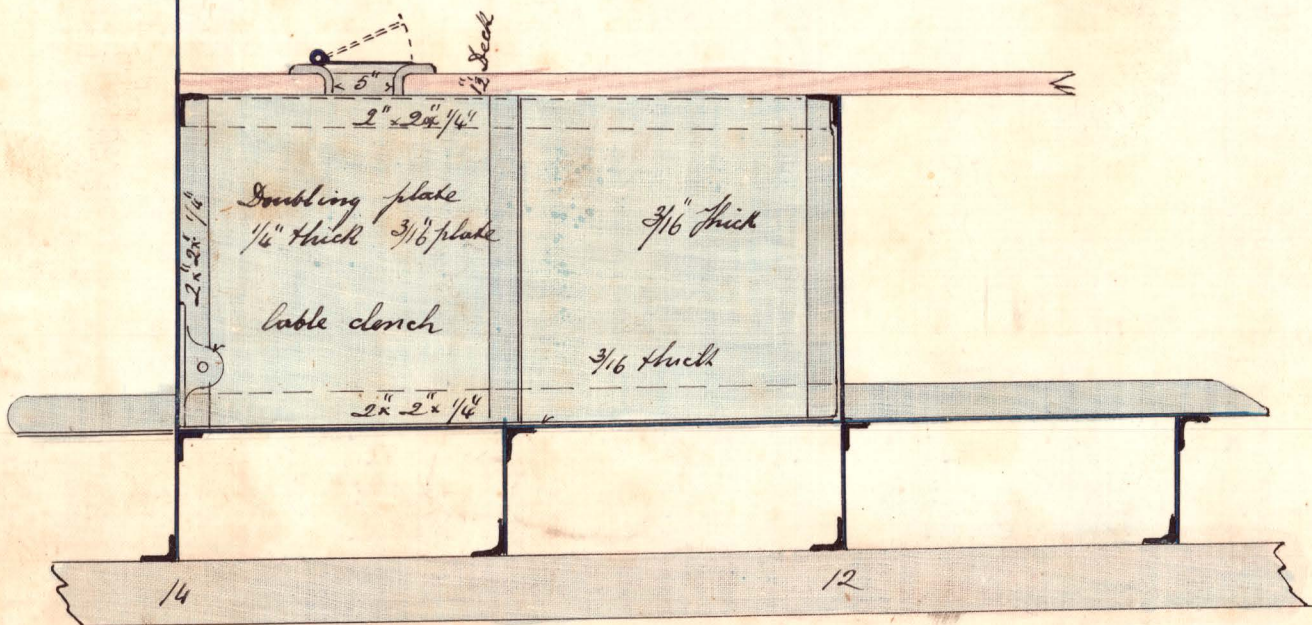 1½" Deck
5"
2" x 2" x 1/4"
2" x 2" x 1/4"
Doubling plate
1/4" thick 3/16" plate
3/16" thick
Cable clench
3/16 thick
2" x 2" x 1/4"
14
12